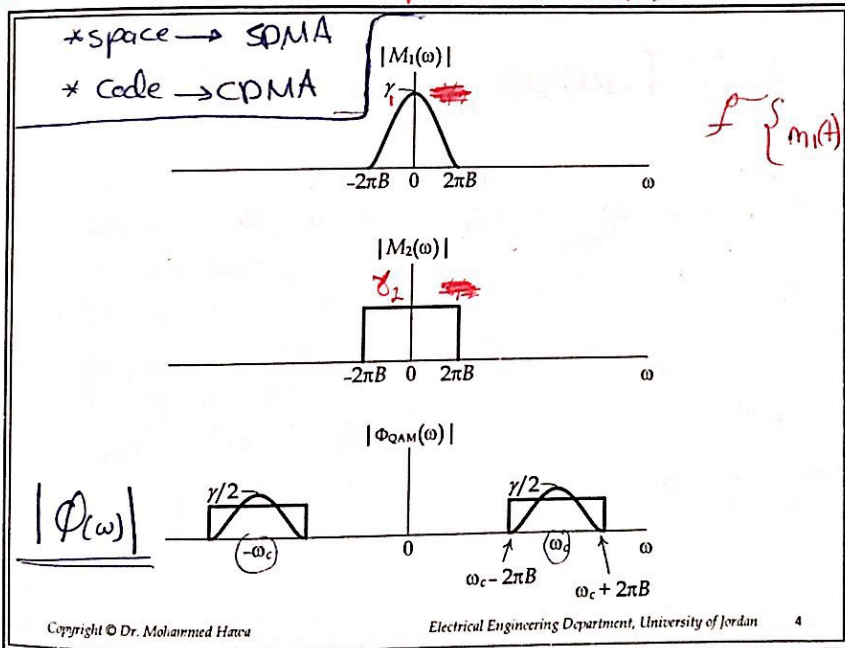 *space → SDMA
* Code → CDMA
|M₁(ω)|
γ₁
m₁(t)
-2πB 0 2πB ω
|M₂(ω)|
γ₂
-2πB 0 2πB ω
|ΦQAM(ω)|
|Φ(ω)|
γ/2 γ/2
-ωc 0 ωc ω
ωc - 2πB ωc + 2πB
Copyright © Dr. Mohammed Hawa Electrical Engineering Department, University of Jordan 4